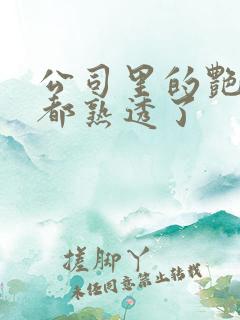 公司里的艳
都熟透了
搓脚丫
未经同意禁止转载